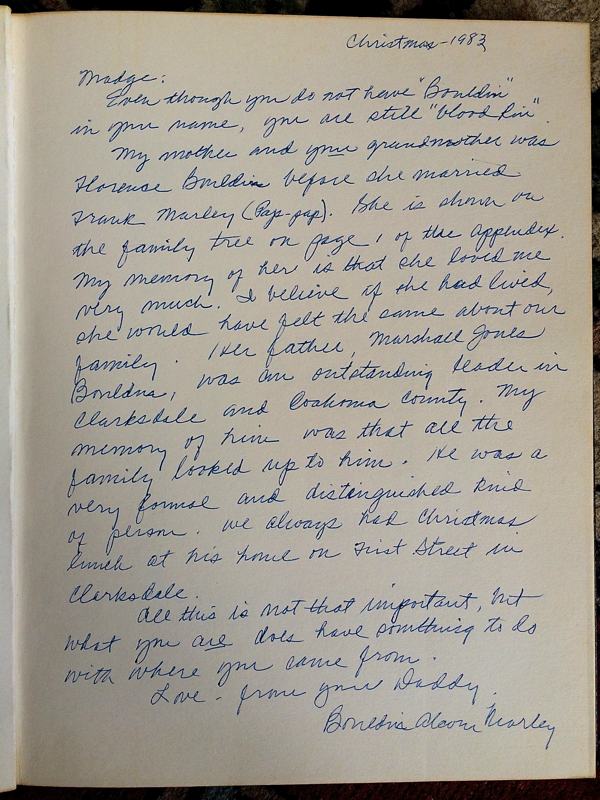 Christmas-1983
Madge:
Even though you do not have "Bouldin"
in your name, you are still "blood kin".
My mother and your grandmother was
Florence Bouldin before she married
Frank Marley (Pap-pap). She is shown on
the family tree on page 1 of the Appendix.
My memory of her is that she loved me
very much. I believe if she had lived,
she would have felt the same about our
family. Her father, Marshall Jones
Bouldin, was an outstanding leader in
Clarksdale and Coahoma County. My
memory of him was that all the
family looked up to him. He was a
very formal and distinguished kind
of person. We always had Christmas
lunch at his home on First Street in
Clarksdale.
All this is not that important, but
what you are does have something to do
with where you came from.
Love - from your Daddy.
Bouldin Alcorn Marley